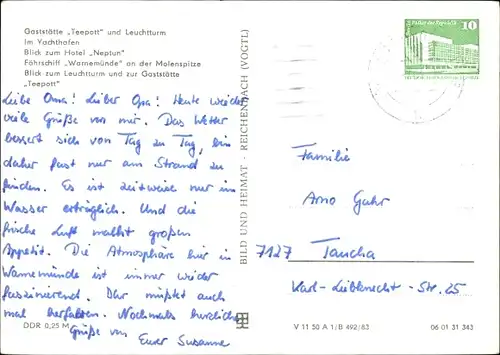 Gaststätte „Teepott" und Leuchtturm
Im Yachthafen
Blick zum Hotel „Neptun"
Fährschiff „Warnemünde" an der Molenspitze
Blick zum Leuchtturm und zur Gaststätte
„Teepott"
Liebe Oma! Lieber Opa! Heute wieder
viele Grüße von mir. Das Wetter
bessert sich von Tag zu Tag, bin
daher fast nur am Strand zu
finden. Es ist zeitweise nur im
Wasser erträglich. Und die
frische Luft macht großen
Appetit. Die Atmosphäre hier in
Warnemünde ist immer wieder
faszinierend. Ihr müßtet auch
mal herfahren. Nochmals herzliche
Grüße von
Eurer Susanne
DDR 0,25 M
BILD UND HEIMAT - REICHENBACH (VOGTL)
Palast der Republik
10
Familie
Arno Gahr
7127 Taucha
Karl-Liebknecht-Str. 25
V 11 50 A 1/B 492/83
06 01 31 343